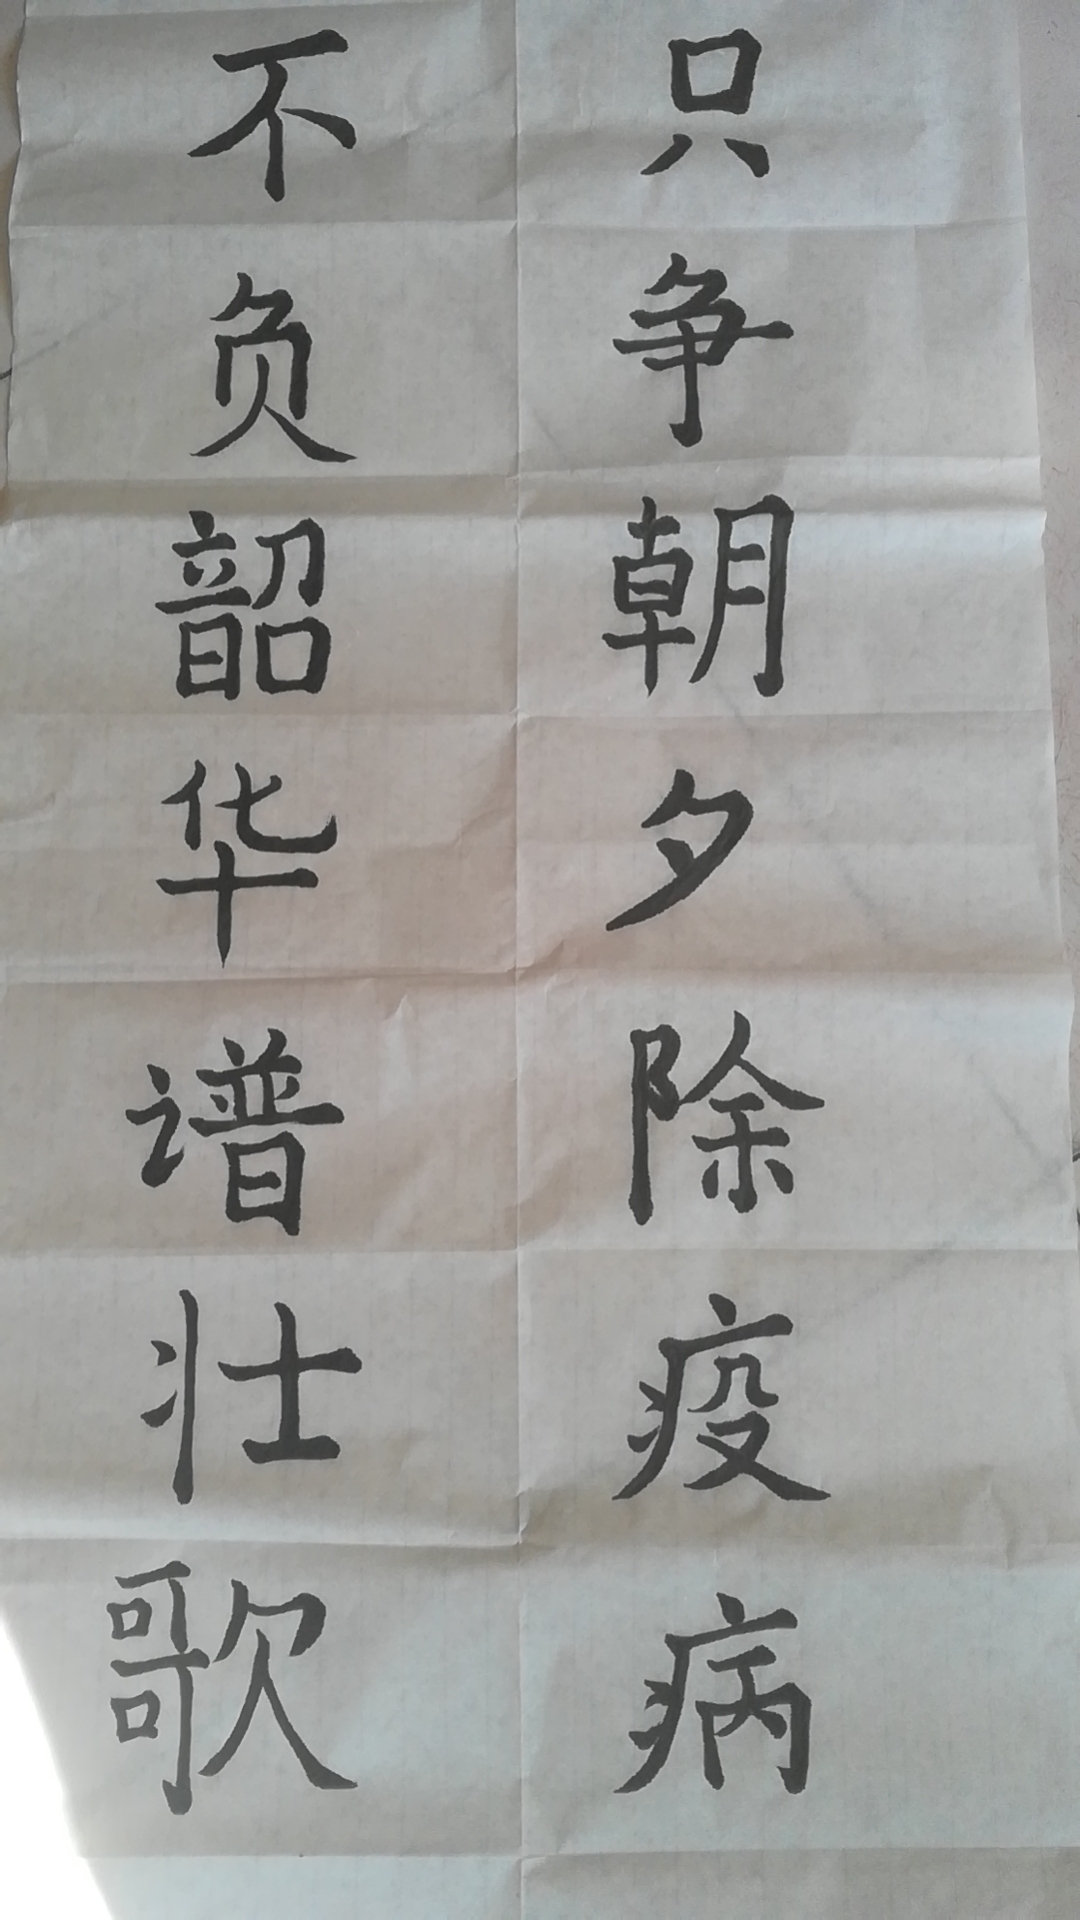 只争朝夕除疫病
不负韶华谱壮歌